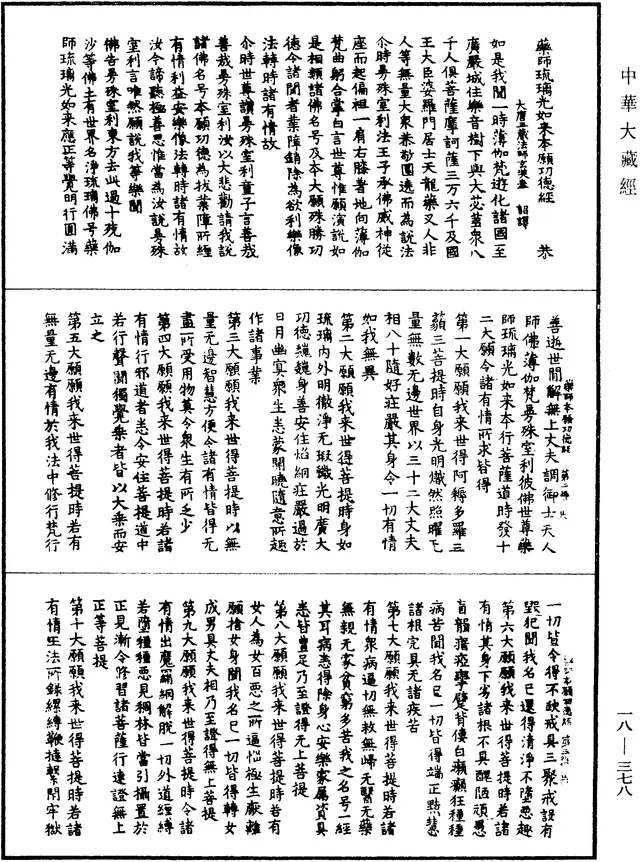 中華大藏經
藥師琉璃光如來本願功德經　恭
大唐三藏法師玄奘奉　詔譯
如是我聞一時薄伽梵遊化諸國至
廣嚴城住樂音樹下與大苾芻衆八
千人俱菩薩摩訶薩三万六千及國
王大臣婆羅門居士天龍藥叉人非
人等無量大衆恭敬圍遶而為說法
尒時曼殊室利法王子承佛威神從
座而起偏袒一肩右膝著地向薄伽
梵曲躬合掌白言世尊惟願演說如
是相類諸佛名号及本大願殊勝功
德令諸聞者業障銷除為欲利樂像
法轉時諸有情故
尒時世尊讚曼殊室利童子言善哉
善哉曼殊室利汝以大悲勸請我說
諸佛名号本願功德為拔業障所纏
有情利益安樂像法轉時諸有情故
汝今諦聽極善思惟當為汝說曼殊
室利言唯然願說我等樂聞
佛告曼殊室利東方去此過十殑伽
沙等佛土有世界名淨琉璃佛号藥
師琉璃光如來應正等覺明行圓滿
善逝世間解無上丈夫調御士天人
藥師本願功德經　第二張　恭
師佛薄伽梵曼殊室利彼佛世尊藥
師琉璃光如來本行菩薩道時發十
二大願令諸有情所求皆得
第一大願願我來世得阿耨多羅三
藐三菩提時自身光明熾然照曜无
量無數无邊世界以三十二大丈夫
相八十隨好莊嚴其身令一切有情
如我無異
第二大願願我來世得菩提時身如
琉璃內外明徹淨无瑕穢光明廣大
功德巍巍身善安住焰網莊嚴過於
日月幽冥衆生悉蒙開曉隨意所趣
作諸事業
第三大願願我來世得菩提時以無
量无邊智慧方便令諸有情皆得无
盡所受用物莫令衆生有所乏少
第四大願願我來世得菩提時若諸
有情行邪道者悉令安住菩提道中
若行聲聞獨覺乘者皆以大乘而安
立之
第五大願願我來世得菩提時若有
無量无邊有情於我法中修行梵行
一切皆令得不缺戒具三聚戒設有
毀犯聞我名已還得清淨不墮惡趣
第六大願願我來世得菩提時若諸
有情其身下劣諸根不具醜陋頑愚
盲聾瘖瘂攣躄背僂白癩癲狂種種
病苦聞我名已一切皆得端正黠慧
諸根完具无諸疾苦
第七大願願我來世得菩提時若諸
有情衆病逼切無救無歸无醫无藥
無親无家貧窮多苦我之名号一經
其耳病悉得除身心安樂家屬資具
悉皆豐足乃至證得无上菩提
第八大願願我來世得菩提時若有
女人為女百惡之所逼惱極生厭離
願捨女身聞我名已一切皆得轉女
成男具丈夫相乃至證得無上菩提
第九大願願我來世得菩提時令諸
有情出魔罥網解脫一切外道纏縛
若墮種種惡見稠林皆當引攝置於
正見漸令修習諸菩薩行速證無上
正等菩提
第十大願願我來世得菩提時若諸
有情王法所錄縲縛鞭撻繫閉牢獄
一八—三七八